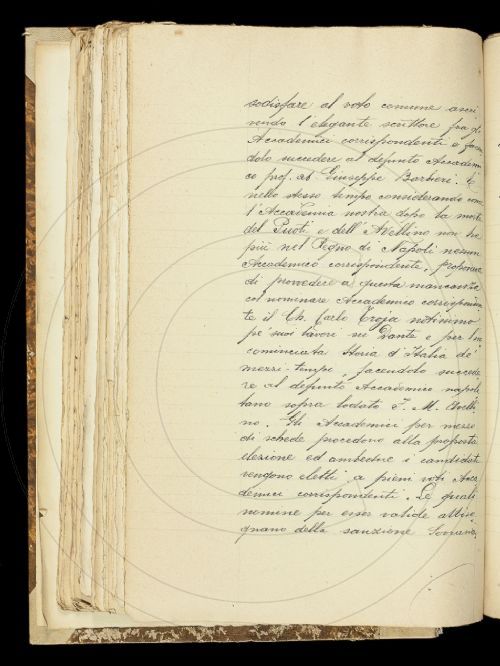 sodisfare al voto comune ascri
vendo l'elegante scrittore fra gli
Accademici corrispondenti e facen
dolo succedere al defunto Accademi
co prof. ab. Giuseppe Barbieri. E
nello stesso tempo considerando come
l'Accademia nostra dopo la morte
del Puoti e dell'Avellino non ha
più nel Regno di Napoli nessun
Accademico corrispondente, propone
di provvedere a questa mancanza
col nominare Accademico corrisponden
te il Ch. Carlo Troja notissimo
pe' suoi lavori su Dante e per l'in
cominciata Storia d'Italia de'
mezzi-tempi, facendolo succede
re al defunto Accademico napole
tano sopra lodato F. M. Avelli
no. Gli Accademici per mezzo
di schede procedono alla proposta
elezione ed ambedue i candidati
vengono eletti a pieni voti Acca
demici corrispondenti. Le quali
nomine per esser valide abbiso
gnano della sanzione Sovrana.